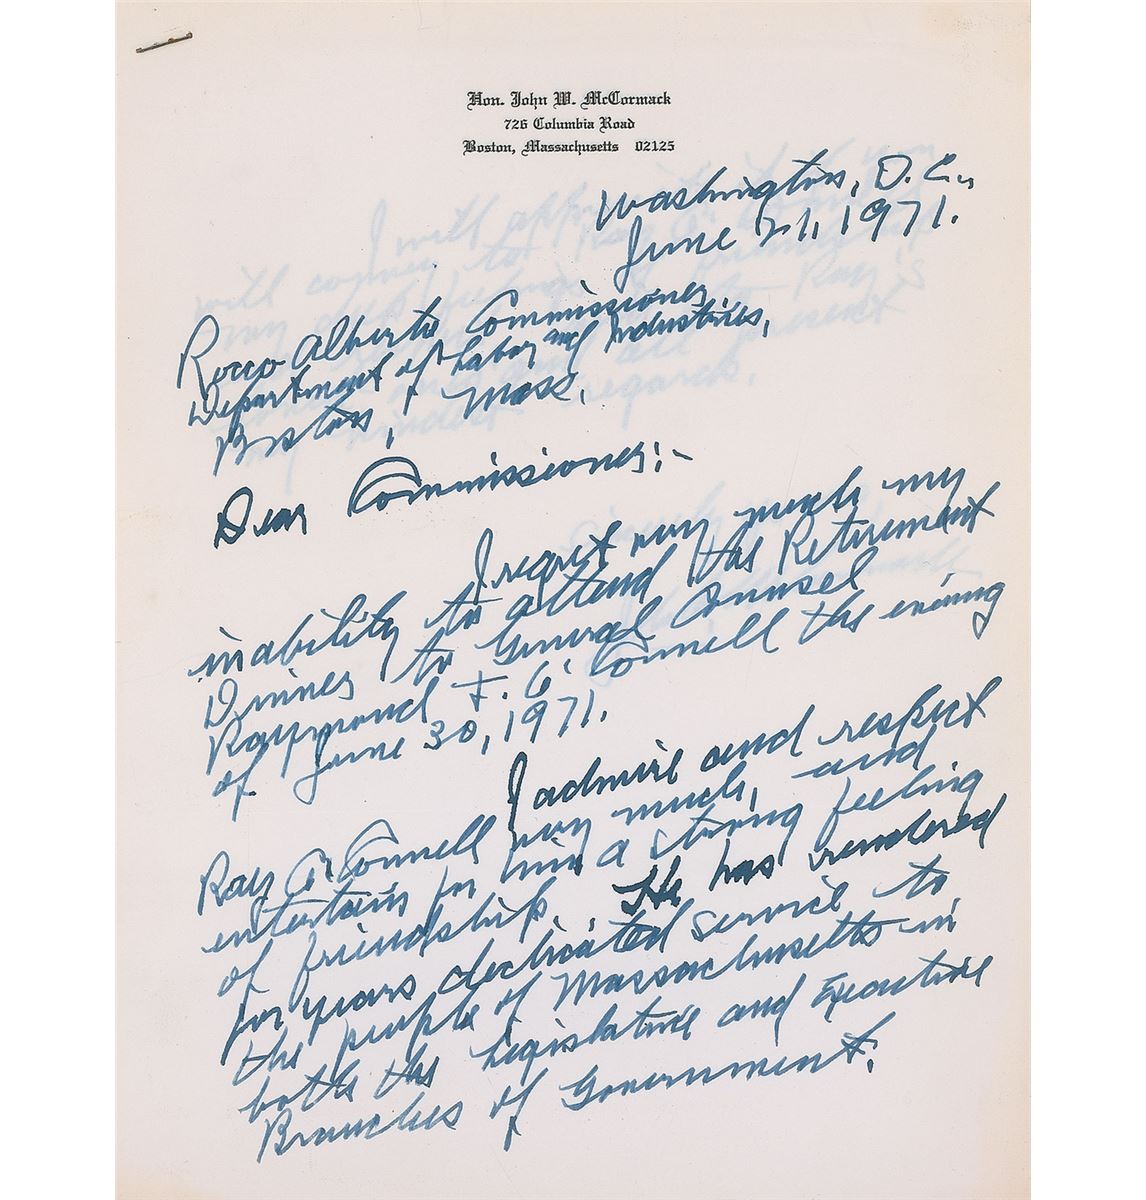 Hon. John W. McCormack
726 Columbia Road
Boston, Massachusetts 02125
Washington, D.C.,
June 21, 1971.
Rocco Alberto Commissioner
Department of Labor and Industries,
Boston, Mass.
Dear Commissioner:-
I regret very much my
inability to attend the Retirement
Dinner to General Counsel
Raymond F. O'Connell the evening
of June 30, 1971.
I admire and respect
Ray O'Connell very much, and
entertain for him a strong feeling
of friendship He has rendered
for years dedicated service to
the people of Massachusetts in
both the Legislative and Executive
Branches of Government.